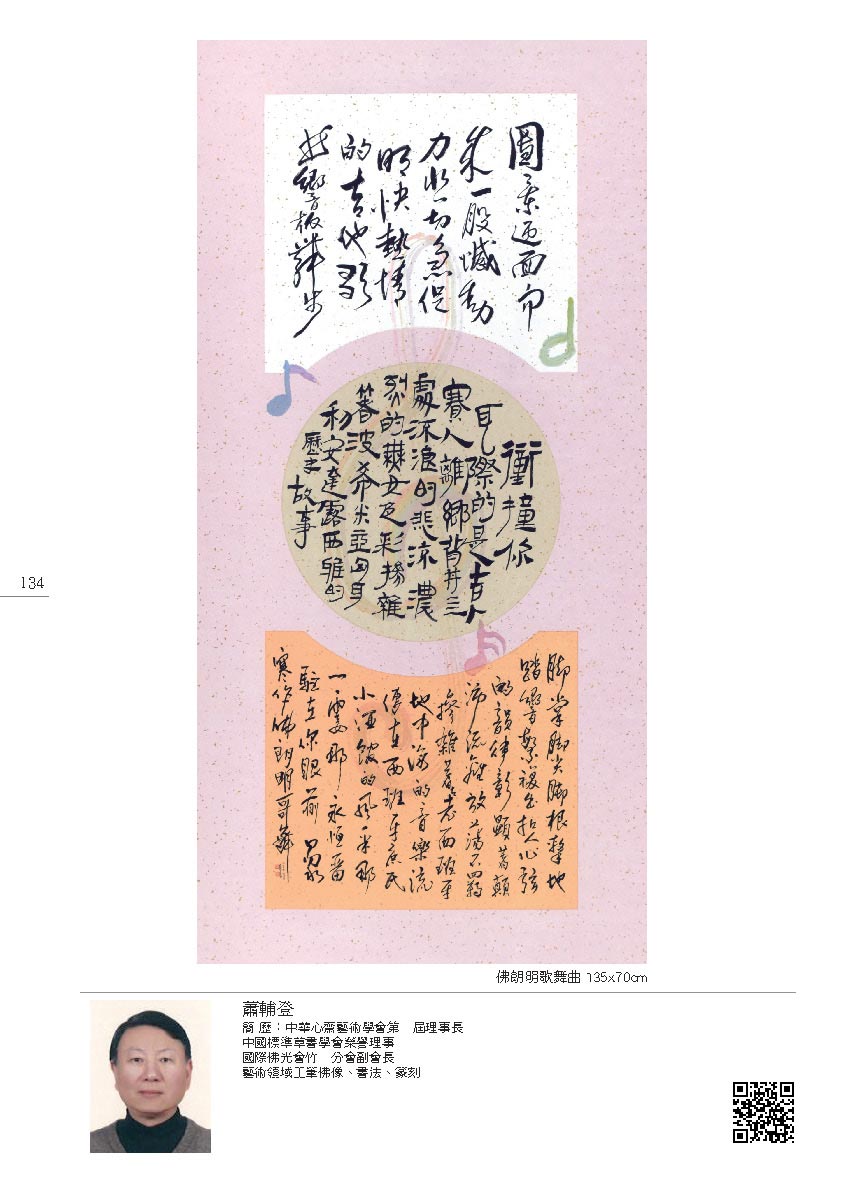 圖景迎面而
來一股撼動
力一切急促
明快熱情
的吉他歌
響板舞步
衝撞你
耳際的是吉卜
賽人離鄉背井
處流浪的悲涼濃
烈的舞女色彩雜
著波希米亞
和安達露西雅的
歷史故事
腳掌腳尖腳根擊地
踏響繁複扣人心弦
的韻律彰顯著顛
沛流離放蕩不羈
摻雜著老西班牙
地中海的音樂流
傳在西班牙庶民
小酒館的風采那
一霎那永恆留
駐在你眼前
寒作佛朗明哥舞
134
佛朗明歌舞曲 135x70cm
蕭輔登
簡 歷：中華心齋藝術學會第　屆理事長
中國標準草書學會榮譽理事
國際佛光會竹　分會副會長
藝術領域工筆佛像、書法、篆刻